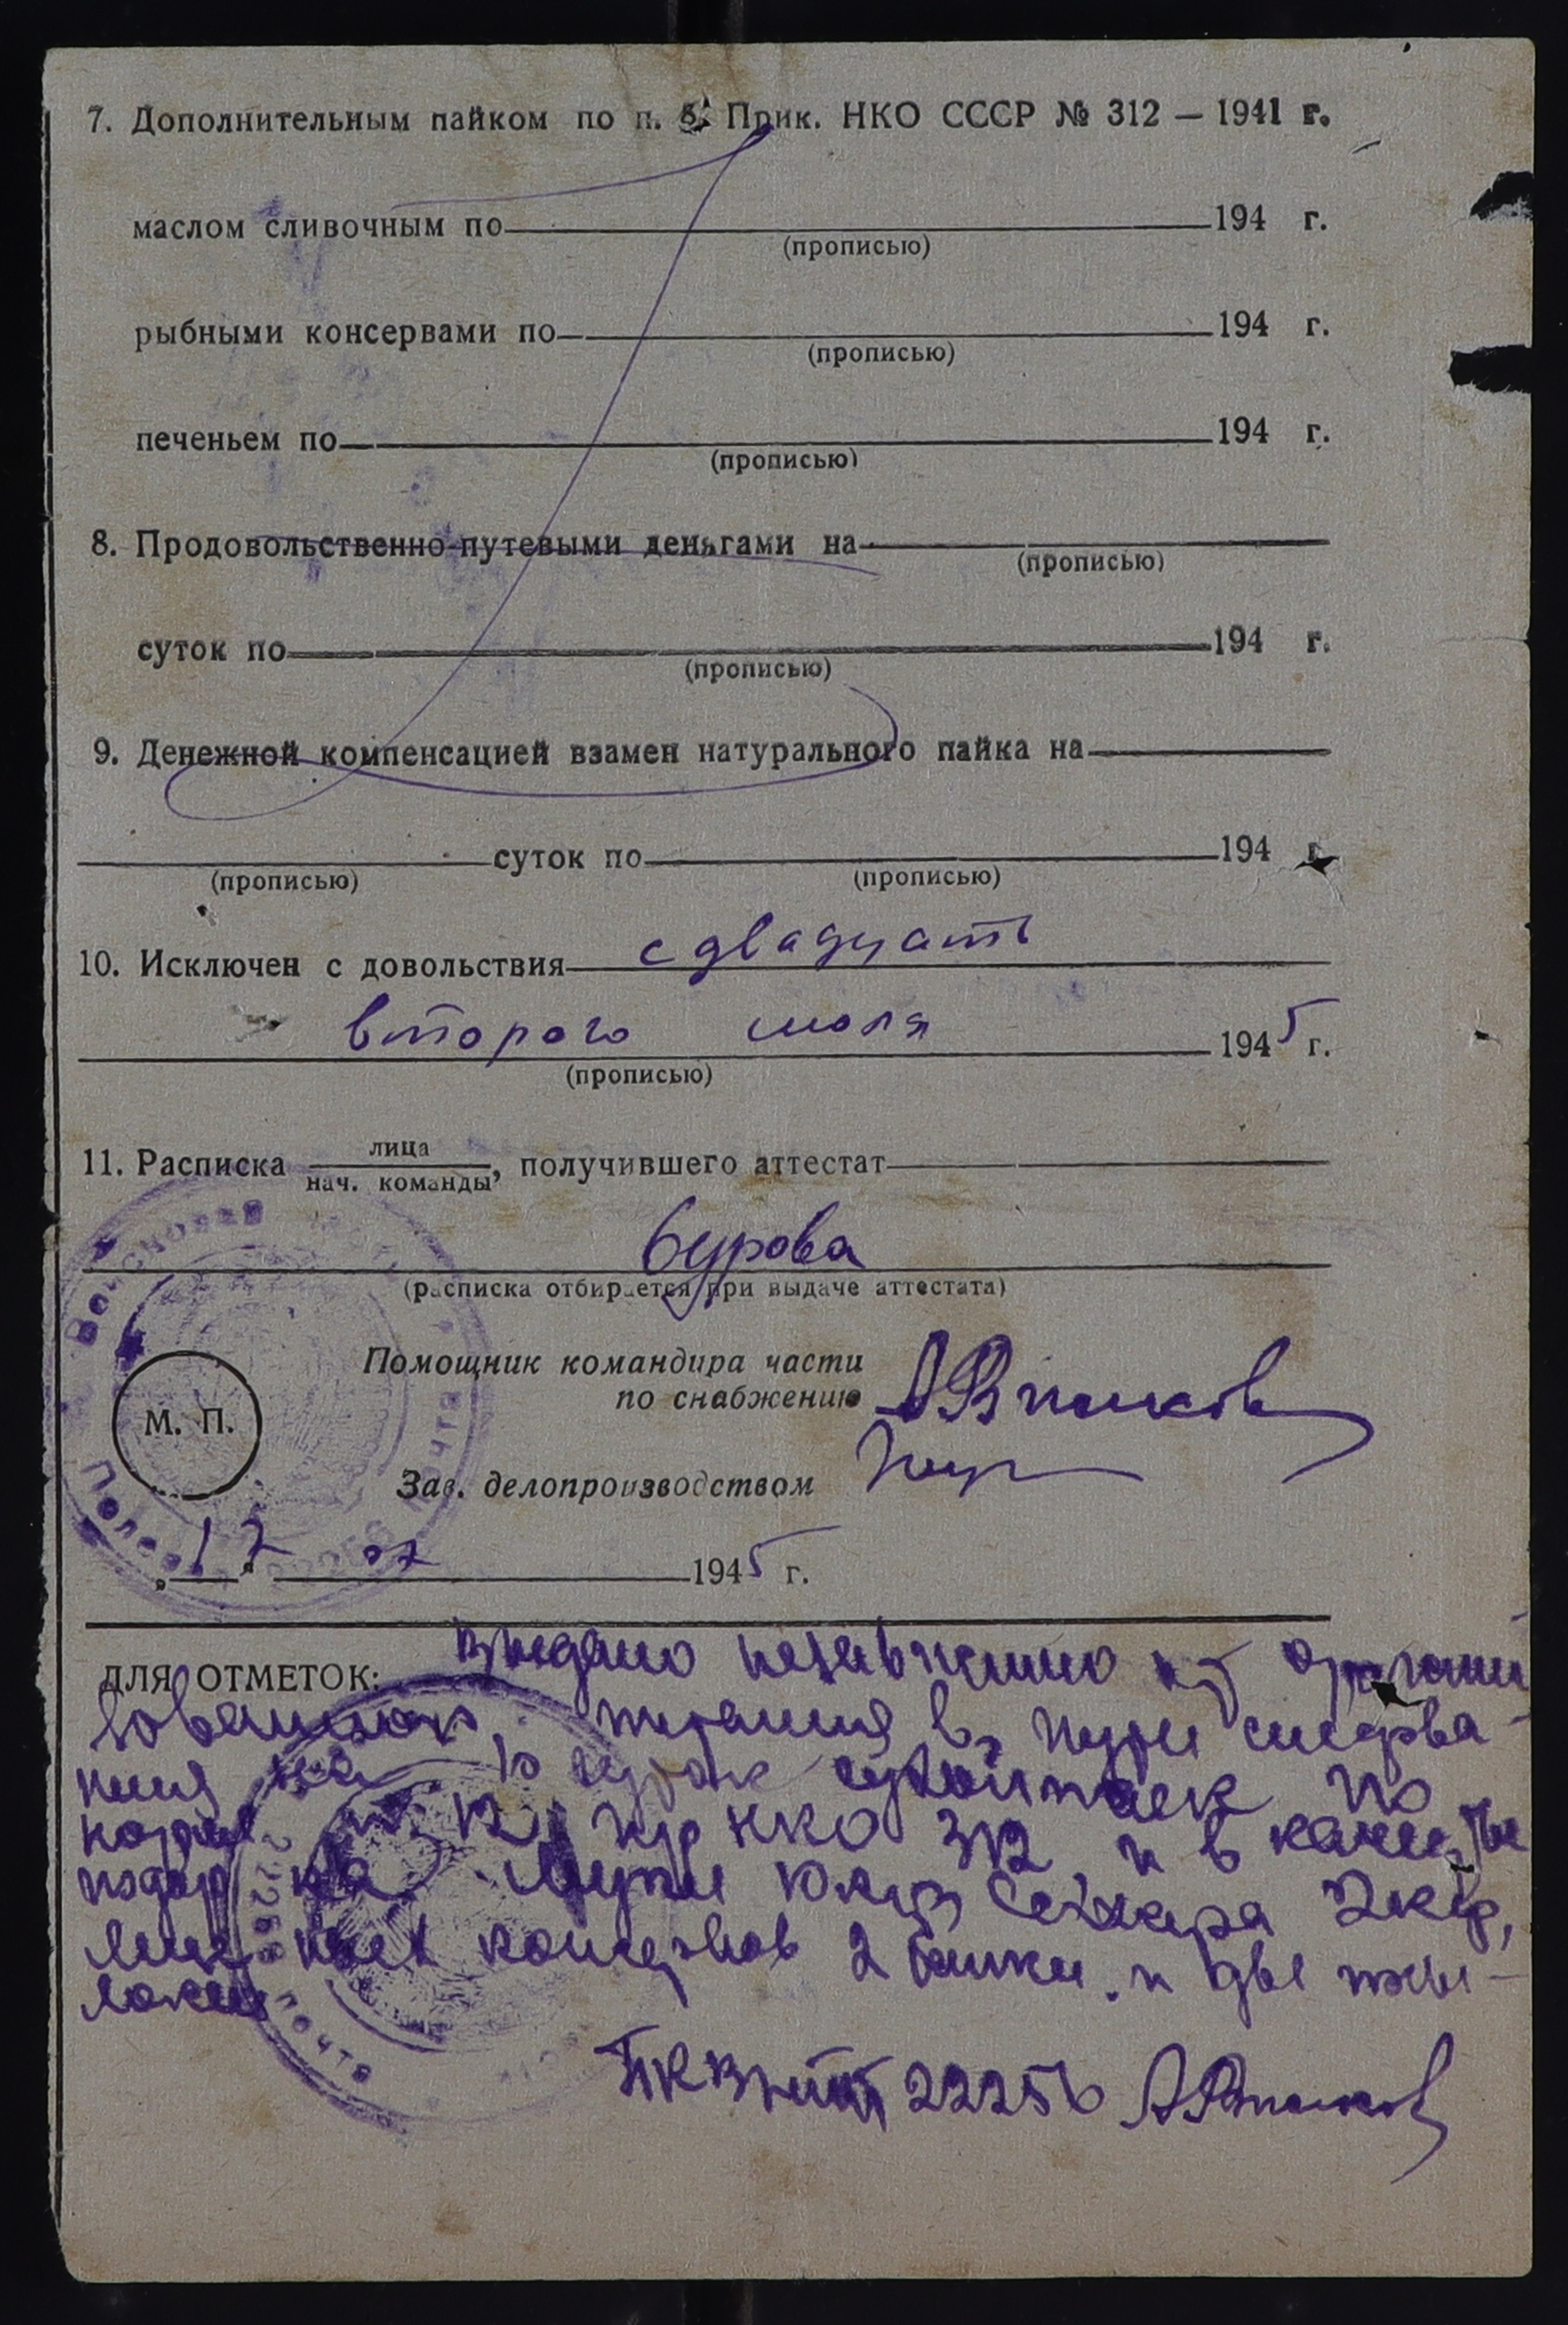 7. Дополнительным пайком по п. 5. Прик. НКО СССР № 312 — 1941 г.
маслом сливочным по 194 г.
(прописью)
рыбными консервами по 194 г.
(прописью)
печеньем по 194 г.
(прописью)
8. Продовольственно-путевыми деньгами на
(прописью)
суток по 194 г.
(прописью)
9. Денежной компенсацией взамен натурального пайка на
суток по 194 г.
(прописью) (прописью)
10. Исключен с довольствия с двадцать
второго июля 1945 г.
(прописью)
11. Расписка лица
нач. команды, получившего аттестат
Бурова
(расписка отбирается при выдаче аттестата)
Помощник командира части
по снабжению
М. П.
Зав. делопроизводством
„12" 07 1945 г.
ДЛЯ ОТМЕТОК: Выдано независимо от органи
зованного питания в пути следова-
ния на суток сухой паек по
норме пр НКО 312 и в качестве
подарка муки 10 кгр Сахара 2 кгр,
консервов 2 банки и две
22256